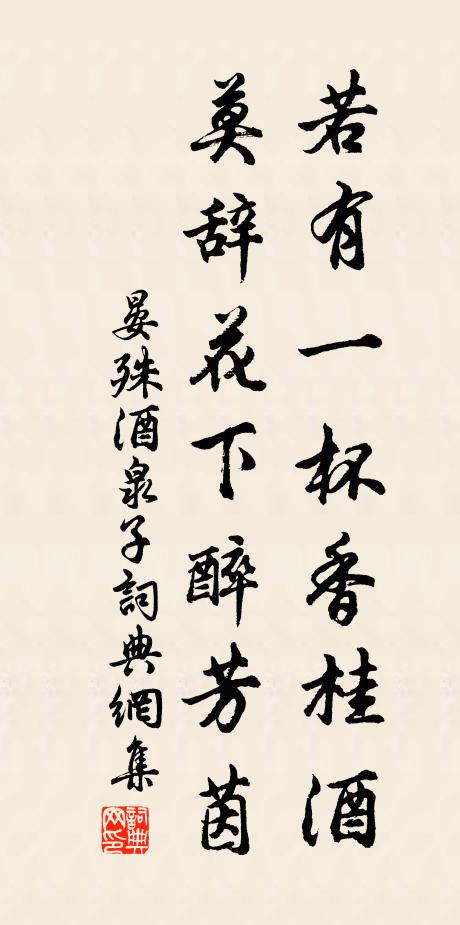 若有一杯香桂酒
莫辞花下醉芳茵
晏殊酒泉子詞典網集
詞典网印